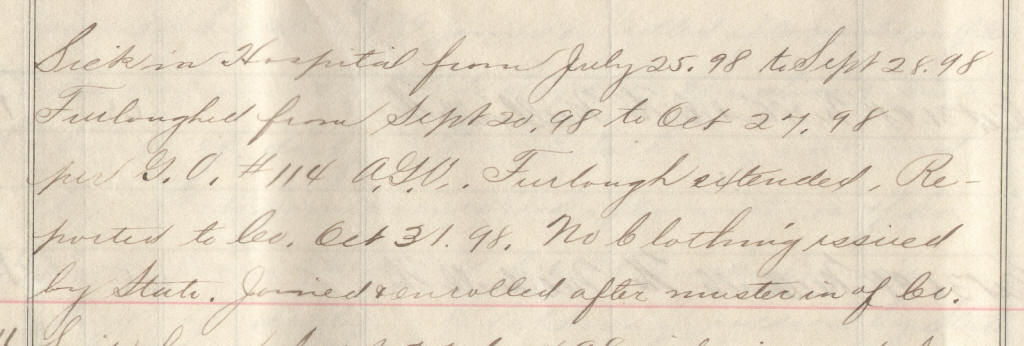 Sick in Hospital from July 25. 98 to Sept 28. 98
Furloughed from Sept 20. 98 to Oct 27. 98
per G. O. #114 A.G.O.. Furlough extended. Re-
ported to Co. Oct 31. 98. No Clothing issued
by State. Joined & enrolled after muster in of Co.